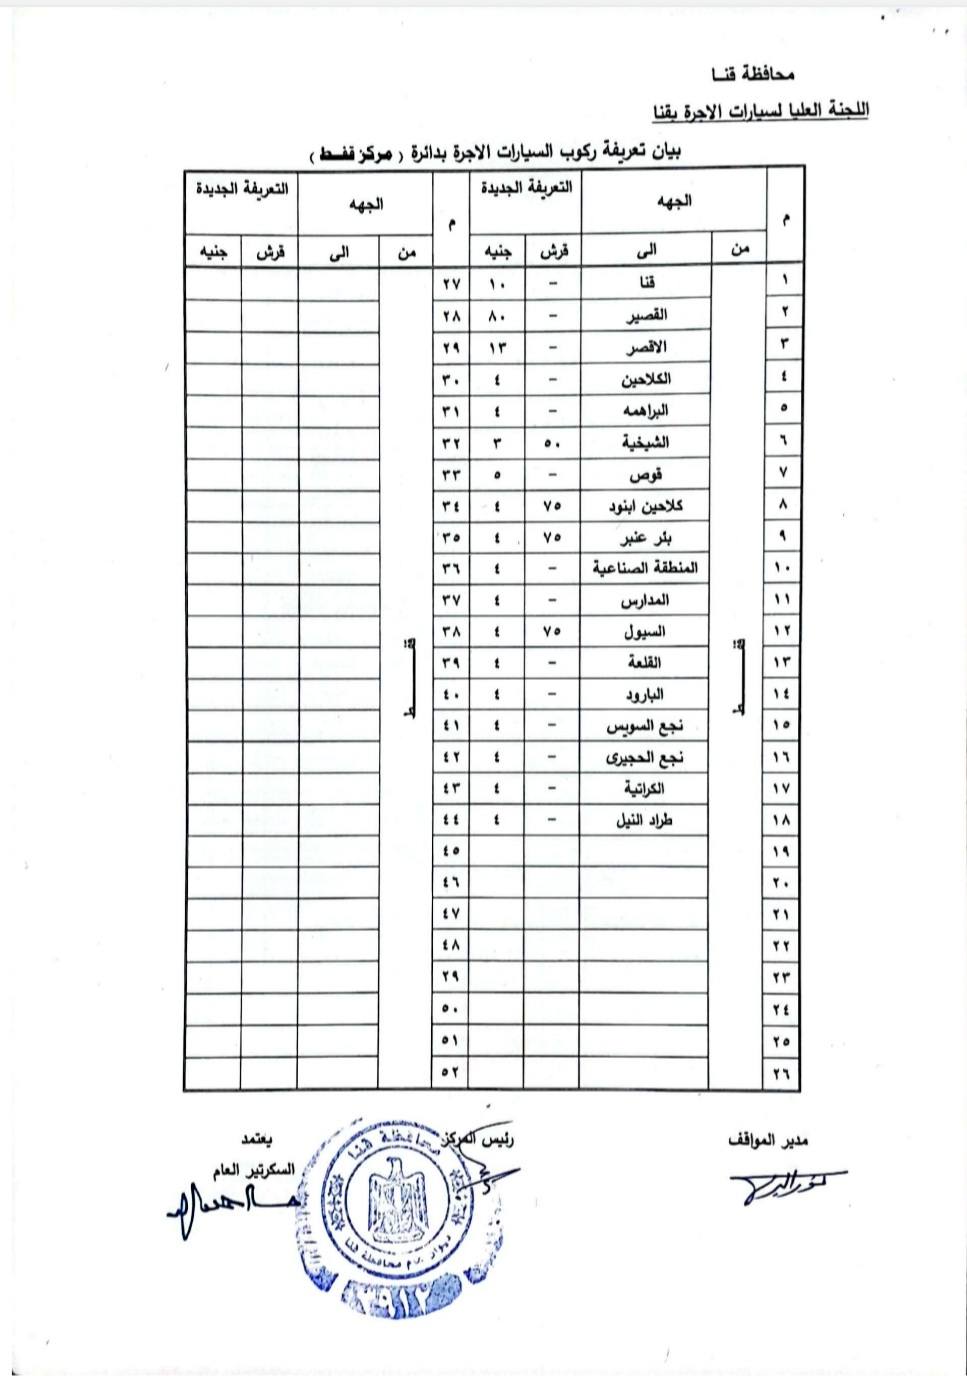 محافظة قنا
اللجنة العليا لسيارات الاجرة بقنا
بيان تعريفة ركوب السيارات الاجرة بدائرة ( مركز قفط )
م الجهه التعريفة الجديدة م الجهه التعريفة الجديدة
من الى قرش جنيه من الى قرش جنيه
١ قنا – ١٠ ٢٧
٢ القصير – ٨٠ ٢٨
٣ الاقصر – ١٣ ٢٩
٤ الكلاحين – ٤ ٣٠
٥ البراهمه – ٤ ٣١
٦ الشيخية ٥٠ ٣ ٣٢
٧ قوص – ٥ ٣٣
٨ كلاحين ابنود ٧٥ ٤ ٣٤
٩ بئر عنبر ٧٥ ٤ ٣٥
١٠ المنطقة الصناعية – ٤ ٣٦
١١ المدارس – ٤ ٣٧
١٢ السيول ٧٥ ٤ ٣٨
قفـــــط قفـــــط
١٣ القلعة – ٤ ٣٩
١٤ البارود – ٤ ٤٠
١٥ نجع السويس – ٤ ٤١
١٦ نجع الحجيرى – ٤ ٤٢
١٧ الكراتية – ٤ ٤٣
١٨ طراد النيل – ٤ ٤٤
١٩ ٤٥
٢٠ ٤٦
٢١ ٤٧
٢٢ ٤٨
٢٣ ٢٩
٢٤ ٥٠
٢٥ ٥١
٢٦ ٥٢
مدير المواقف رئيس المركز يعتمد
السكرتير العام
محافظة قنا
ديوان عام محافظة قنا